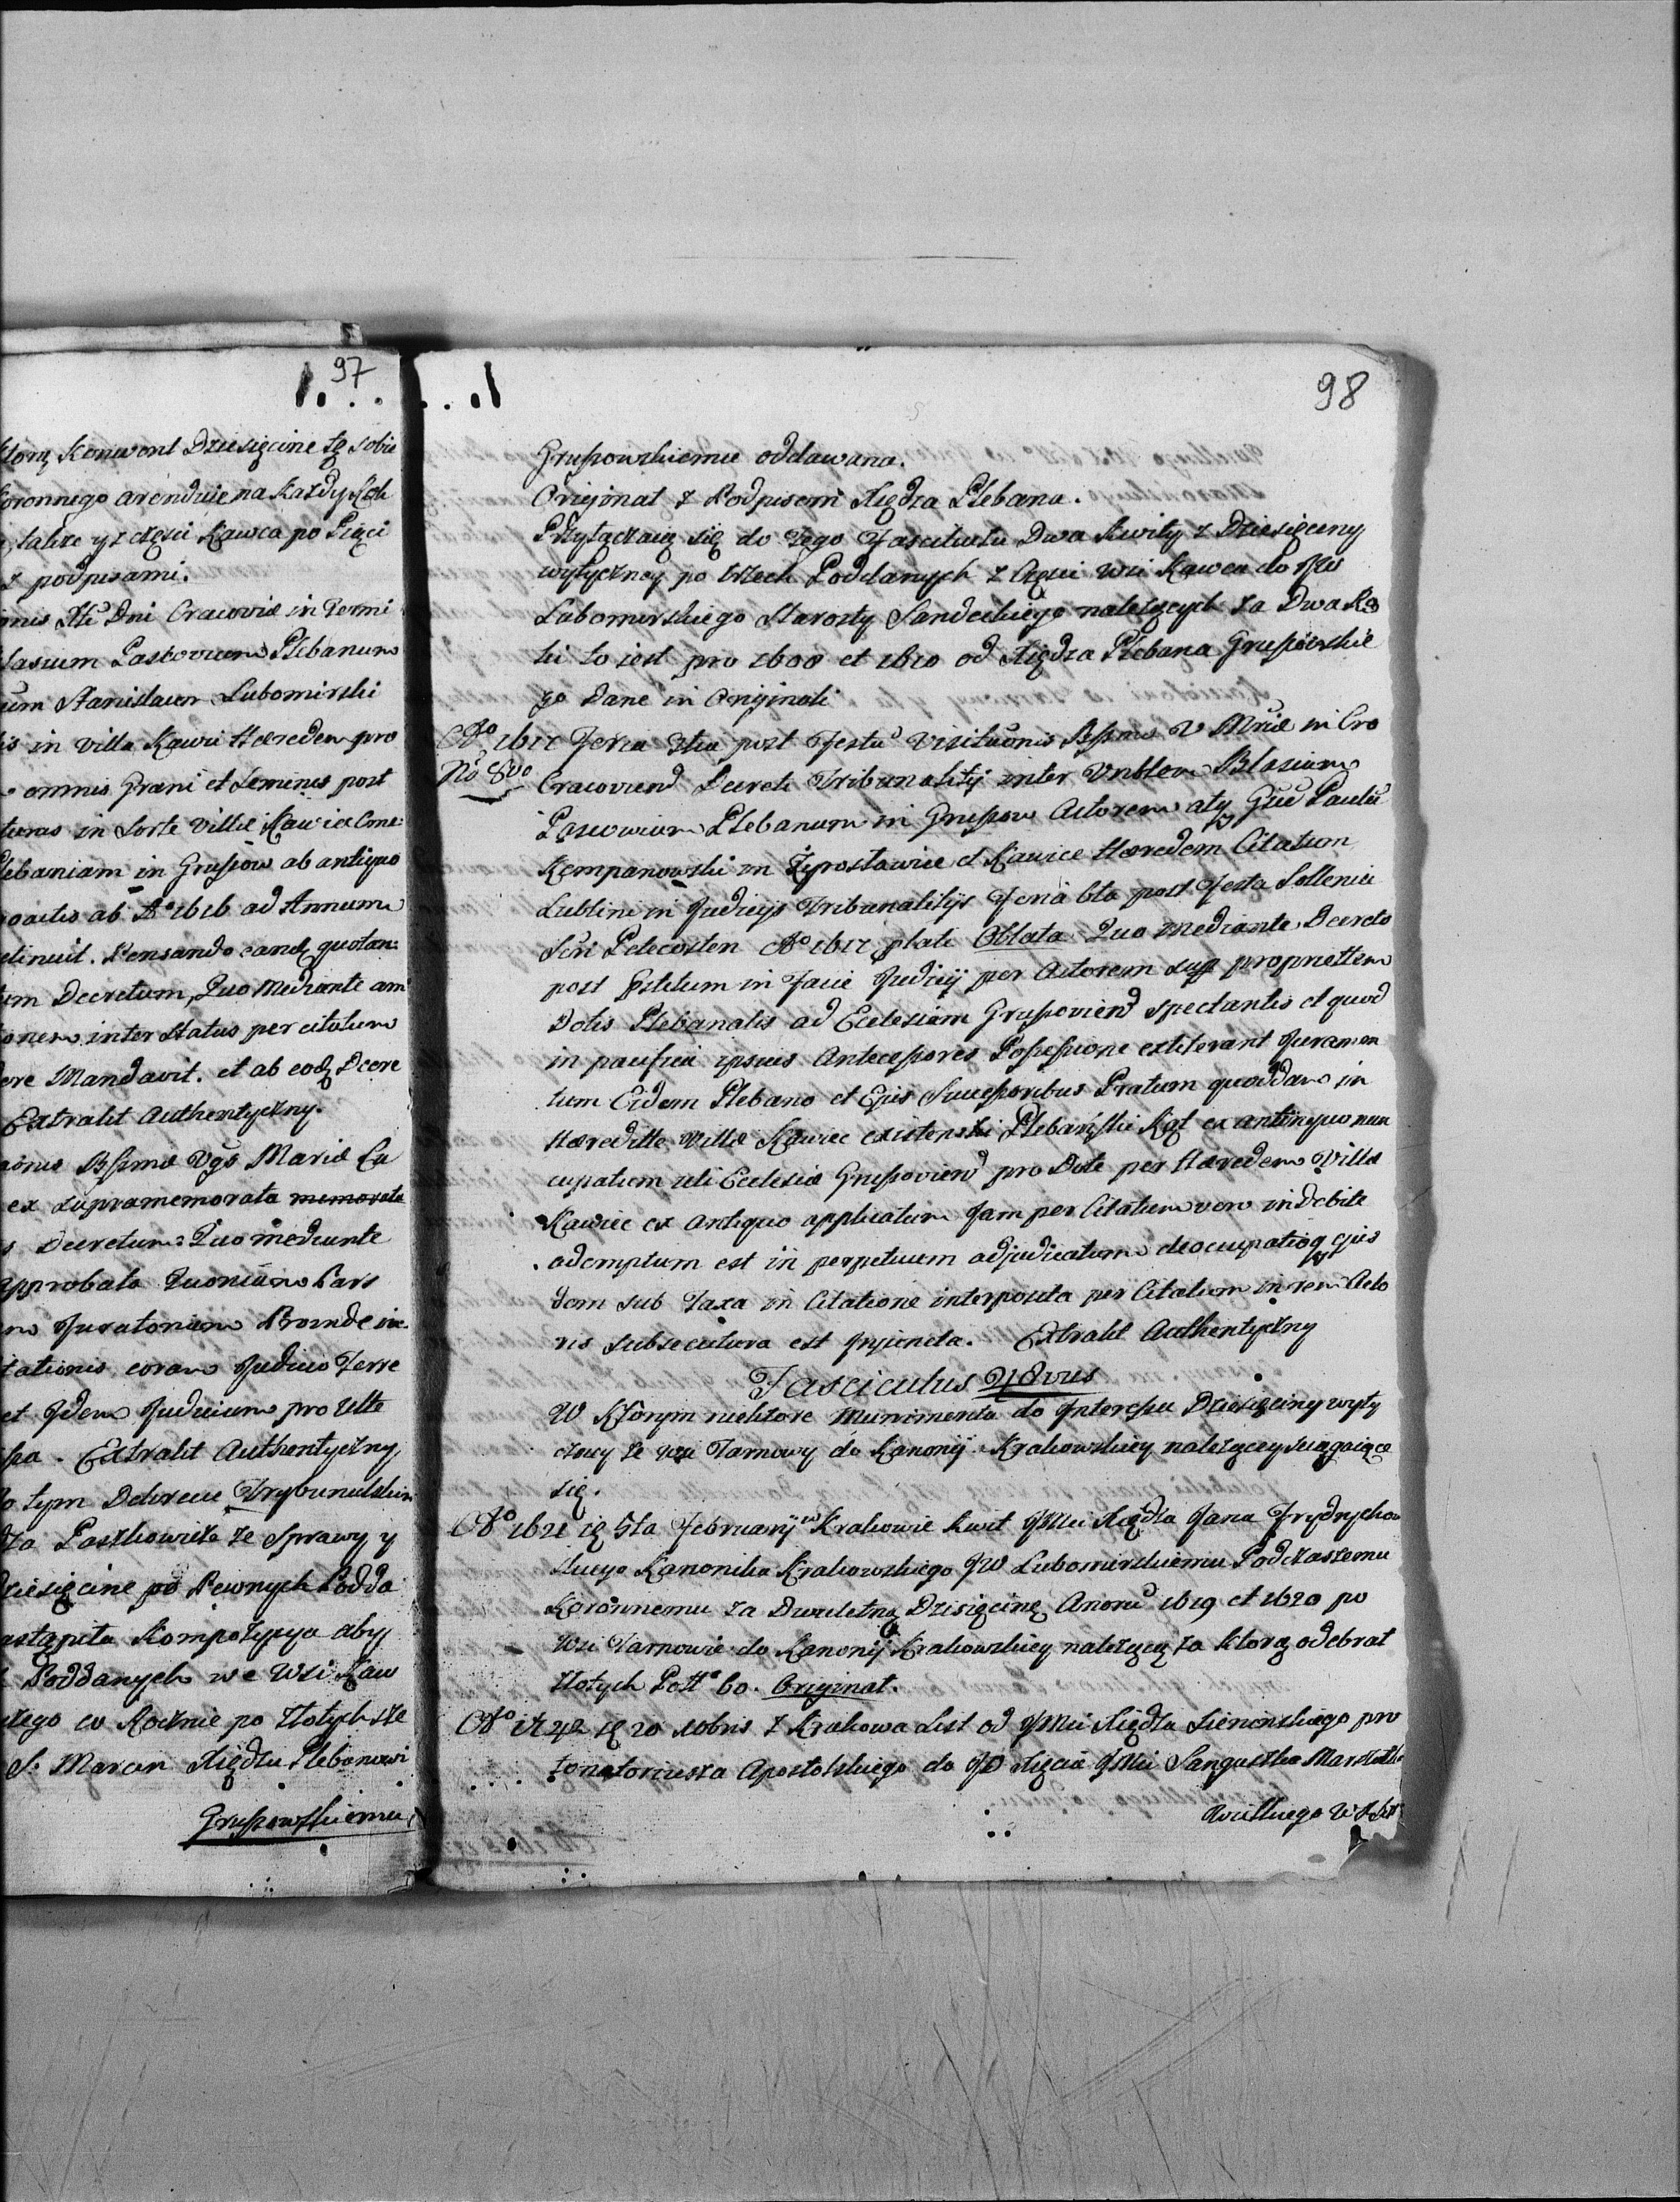 97
ktorą Konwent Dziesięcine tę sobie
Koronnego arenduie na każdy Rok
także y z części Kawca po Pięci
z podpisami.
Dni Cracoviæ in Termi
Paskovium Plebanum
Stanislaum Lubomirski
in villa Kawiec Hæredem pro
omnis Grani et Seminis post
in Sorte Villæ Kawiec
Plebaniam in Gruszow ab antiquo
ab Aº 1616 ad Annum
Pensando quotan:
Decretum, Quo Mediante
inter Status per citatum
Mandavit. et ab eodq Decre
Extrakt Authentyczny.
Bssimæ Vgs Mariæ
ex supramemorata memorata
Decretum: Quo mediante
approbata Quoniam Pars
Juratorium Proinde
citationis coram Judicio Terre
et Idem Judicium pro
Extrakt Authentyczny
Po tym Dekrecie Trybunalskim
Paszkowicza ze Sprawy y
Dziesięcine po Pewnych Podda
nastąpiła Kompozycya aby
Poddanych we Wsi Kaw
co Rocznie po Złotych
S. Marcin Xiędzu Plebanowi
Gruszowskiemu
98
Gruszowskiemu oddawana.
Originał z Podpisem Xiędza Plebana.
Przyłączaią się do Tego Fascikułu Dwa Kwity z Dziesięciny
wytyczney po trzech Poddanych z Części wsi Kawca do JW
Lubomirskiego Starosty Sandeckiego należących za Dwa Ro
ki to iest pro 1608 et 1610 od Xiędza Plebana Gruszowskie
go Dane in Originali
Aº 1617 Feria 3tia post Festũ Visitaõnis Bssmæ V Mriæ in Cro
No 8vo Cracovien Decreti Tribunalitij inter Vnblem Blasium
Pascovium Plebanum in Gruszow Actorem atq Gsũ Paulũ
Kempanowski in Zyrosławice et Kawice Hæredem Citatum
Lublini in Judicijs Tribunalitijs Feria 6ta post Festa Sollenia
Scri Petecosten Aº 1617 plati Oblata. Quo mediante Decreto
post Pstitum in Facie Judicij per Actorem sup propriettem
Dotis Plebanalis ad Ecclesiam Gruszovien spectantis et quod
in paufica ipsius Antecessores Possessione extiterant Juramen
tum Eidem Plebano et Ejus Successoribus Pratum quoddam in
Hæreditte Villæ Kawiec existens Plebański Kąt ex antiquo nun
cupatum uti Ecclesiæ Gruszovien pro Dote per Hæredem Villæ
Kawiec ex Antiquo applicatum Jam per Citatum vero indebite
ademptum est in perpetuum adjudicatum deocupatioq ejus
dem sub Taxa in Citatione interposita per Citatum in rem Acto
ris subsecutura est Injuncta. Extrakt Authentyczny
Fasciculus 42dus
W Którym niektore Munimenta do Interessu Dziesięciny wyty
czney ze wsi Tarnowy do Kanonij Krakowskiey należącey sciągaiące
się.
Aº 1621 ię 5ta Februarij w Krakowie Kwit JMci Xiędza Jana Frydrycho
skiego Kanonika Krakowskiego JW Lubomirskiemu Podczaszemu
Koronnemu za Dwuletną Dzisięcinę Anorũ 1619 et 1620 po
Wsi Tarnowie do Kanonij Krakowskiey należącą za ktorą odebrał
Złotych Poll: 60. Originał.
Aº 1742 ię 20 Xobris z Krakowa List od JMci Xiędza Sienenskiego pro
tonotoriusza Apostolskiego do JO Xięcia JMci Sanguszka Marszałka
Wielkiego W X Litt